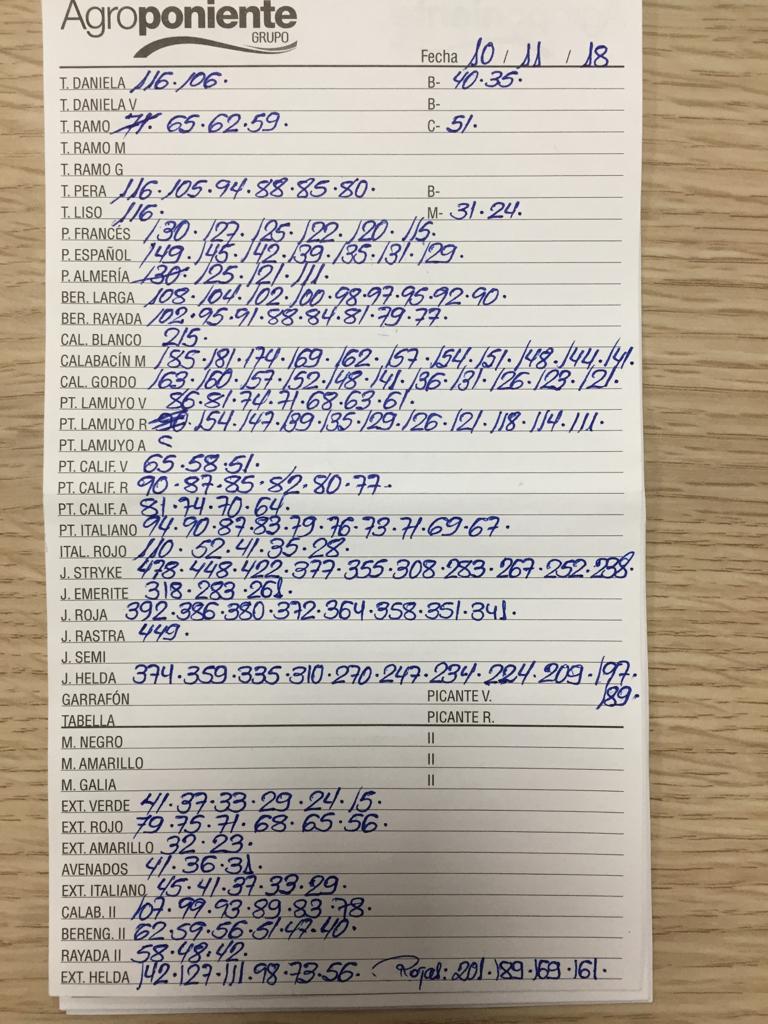 Agroponiente
GRUPO
Fecha 10 / 11 / 18
T. DANIELA 116·106· B- 40·35·
T. DANIELA V B-
T. RAMO 71· 65·62·59· C- 51·
T. RAMO M
T. RAMO G
T. PERA 116·105·94·88·85·80· B-
T. LISO 116· M- 31·24·
P. FRANCÉS 130·127·125·122·120·115·
P. ESPAÑOL 149·145·142·139·135·131·129·
P. ALMERÍA 130·125·121·111·
BER. LARGA 108·104·102·100·98·97·95·92·90·
BER. RAYADA 102·95·91·88·84·81·79·77·
CAL. BLANCO 215·
CALABACÍN M 185·181·174·169·162·157·154·151·148·144·141·
CAL. GORDO 163·160·157·152·148·141·136·131·126·123·121·
PT. LAMUYO V 86·81·74·71·68·63·61·
PT. LAMUYO R 154·147·139·135·129·126·121·118·114·111·
PT. LAMUYO A
PT. CALIF. V 65·58·51·
PT. CALIF. R 90·87·85·82·80·77·
PT. CALIF. A 81·74·70·64·
PT. ITALIANO 94·90·87·83·79·76·73·71·69·67·
ITAL. ROJO 110· 52·41·35·28·
J. STRYKE 478·448·422·377·355·308·283·267·252·238·
J. EMERITE 318·283·261·
J. ROJA 392·386·380·372·364·358·351·341·
J. RASTRA 449·
J. SEMI
J. HELDA 374·359·335·310·270·247·234·224·209·197·
GARRAFÓN PICANTE V. 189·
TABELLA PICANTE R.
M. NEGRO II
M. AMARILLO II
M. GALIA II
EXT. VERDE 41·37·33·29·24·15·
EXT. ROJO 79·75·71·68·65·56·
EXT. AMARILLO 32·23·
AVENADOS 41·36·31·
EXT. ITALIANO 45·41·37·33·29·
CALAB. II 107·99·93·89·83·78·
BERENG. II 62·59·56·51·47·40·
RAYADA II 58·48·42·
EXT. HELDA 142·127·111·98·73·56· Rojal: 201·189·169·161·